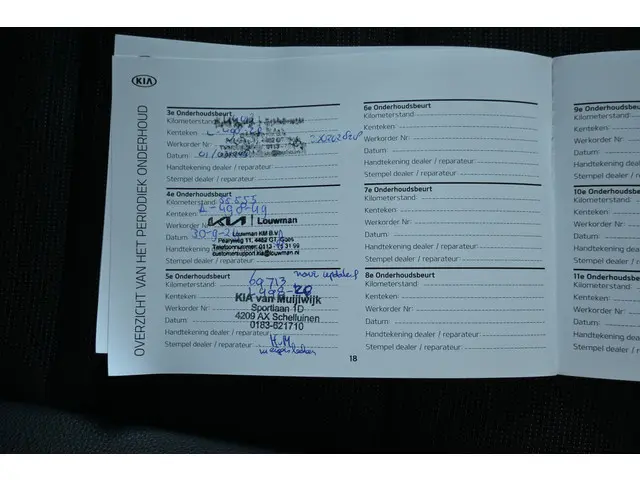 KIA
OVERZICHT VAN HET PERIODIEK ONDERHOUD
3e Onderhoudsbeurt
Kilometerstand:
Kenteken:
Werkorder Nr:
Datum:
Handtekening dealer / reparateur:
Stempel dealer / reparateur:
4e Onderhoudsbeurt
Kilometerstand:
Kenteken:
Werkorder
KIA Louwman
Louwman KM B.V.
Datum: 30-9-2
Pearyweg 11, 4462 GT Goes
Telefoonnummer: 0113- 23 31 99
Handtekening
customersupport.kia@louwman.nl
Stempel dealer / reparateur:
5e Onderhoudsbeurt
Kilometerstand: 69713 navi updated
Kenteken:
KIA van Muijlwijk
Werkorder Nr: Sportlaan 1D
4209 AX Schelluinen
Datum: 0183-621710
Handtekening dealer / reparateur:
Stempel dealer / reparateur:
6e Onderhoudsbeurt
Kilometerstand:
Kenteken:
Werkorder Nr:
Datum:
Handtekening dealer / reparateur:
Stempel dealer / reparateur:
7e Onderhoudsbeurt
Kilometerstand:
Kenteken:
Werkorder Nr:
Datum:
Handtekening dealer / reparateur:
Stempel dealer / reparateur:
8e Onderhoudsbeurt
Kilometerstand:
Kenteken:
Werkorder Nr:
Datum:
Handtekening dealer / reparateur:
Stempel dealer / reparateur:
18
9e Onderhoudsb
Kilometerstand:
Kenteken:
Werkorder Nr:
Datum:
Handtekening de
Stempel dealer / r
10e Onderhouds
Kilometerstand:
Kenteken:
Werkorder Nr:
Datum:
Handtekening de
Stempel dealer / re
11e Onderhoudsb
Kilometerstand:
Kenteken:
Werkorder Nr:
Datum:
Handtekening dea
Stempel dealer / re